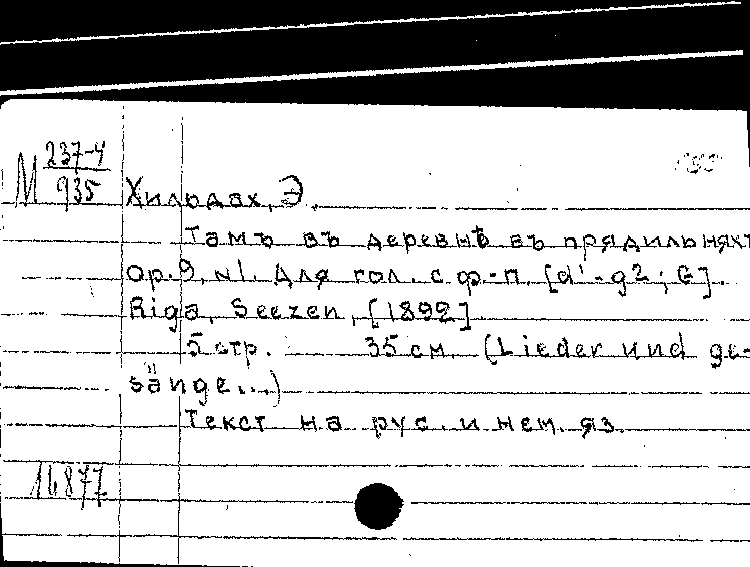 М 237-4
935
Хильдах, Э.
Тамъ въ деревнѣ въ прядильняхъ
op. 9, №1. Для гол. с ф.-п. [d'-g2; G].
Riga, Seezen, [1892]
5 стр. 35 см. (Lieder und ge-
sänge...)
Текст на рус. и нем. яз.
16877